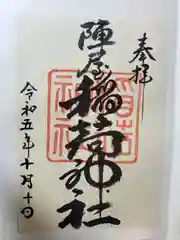 奉拝
陣屋稲荷神社
令和五年十月十日